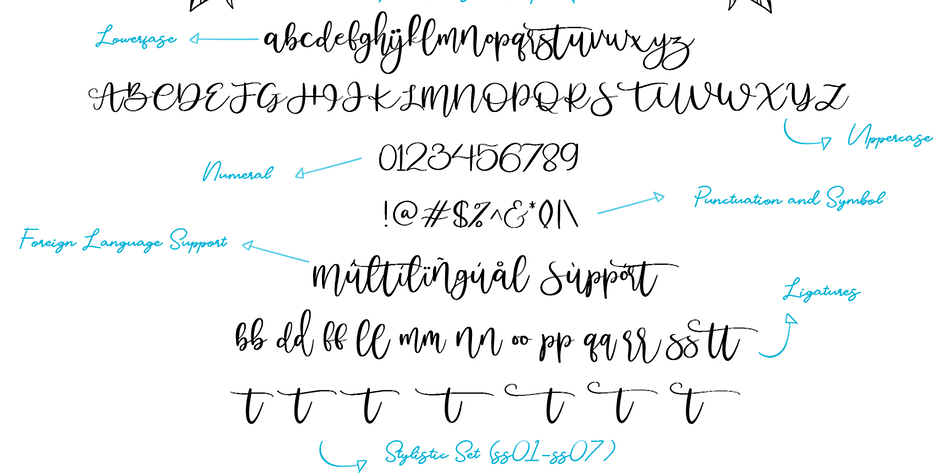 Lowerfase
abcdefghijklmnopqrstuvwxyz
ABCDEFGHIJKLMNOPQRSTUVWXYZ
Uppercase
Numeral
0123456789
!@#$%^&*()|\
Punctuation and Symbol
Foreign Language Support
Múltílïñgúål Sùppórt
Ligatures
bb dd ff ll mm nn oo pp qq rr ss tt
t t t t t t t
Stylistic Set (ss01-ss07)